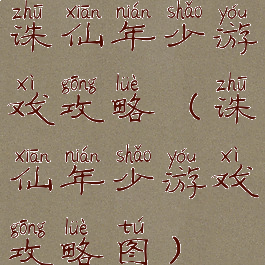 zhū xiān nián shǎo yóu
诛仙年少游
xì gōng lüè zhū
戏攻略（诛
xiān nián shǎo yóu xì
仙年少游戏
gōng lüè tú
攻略图）